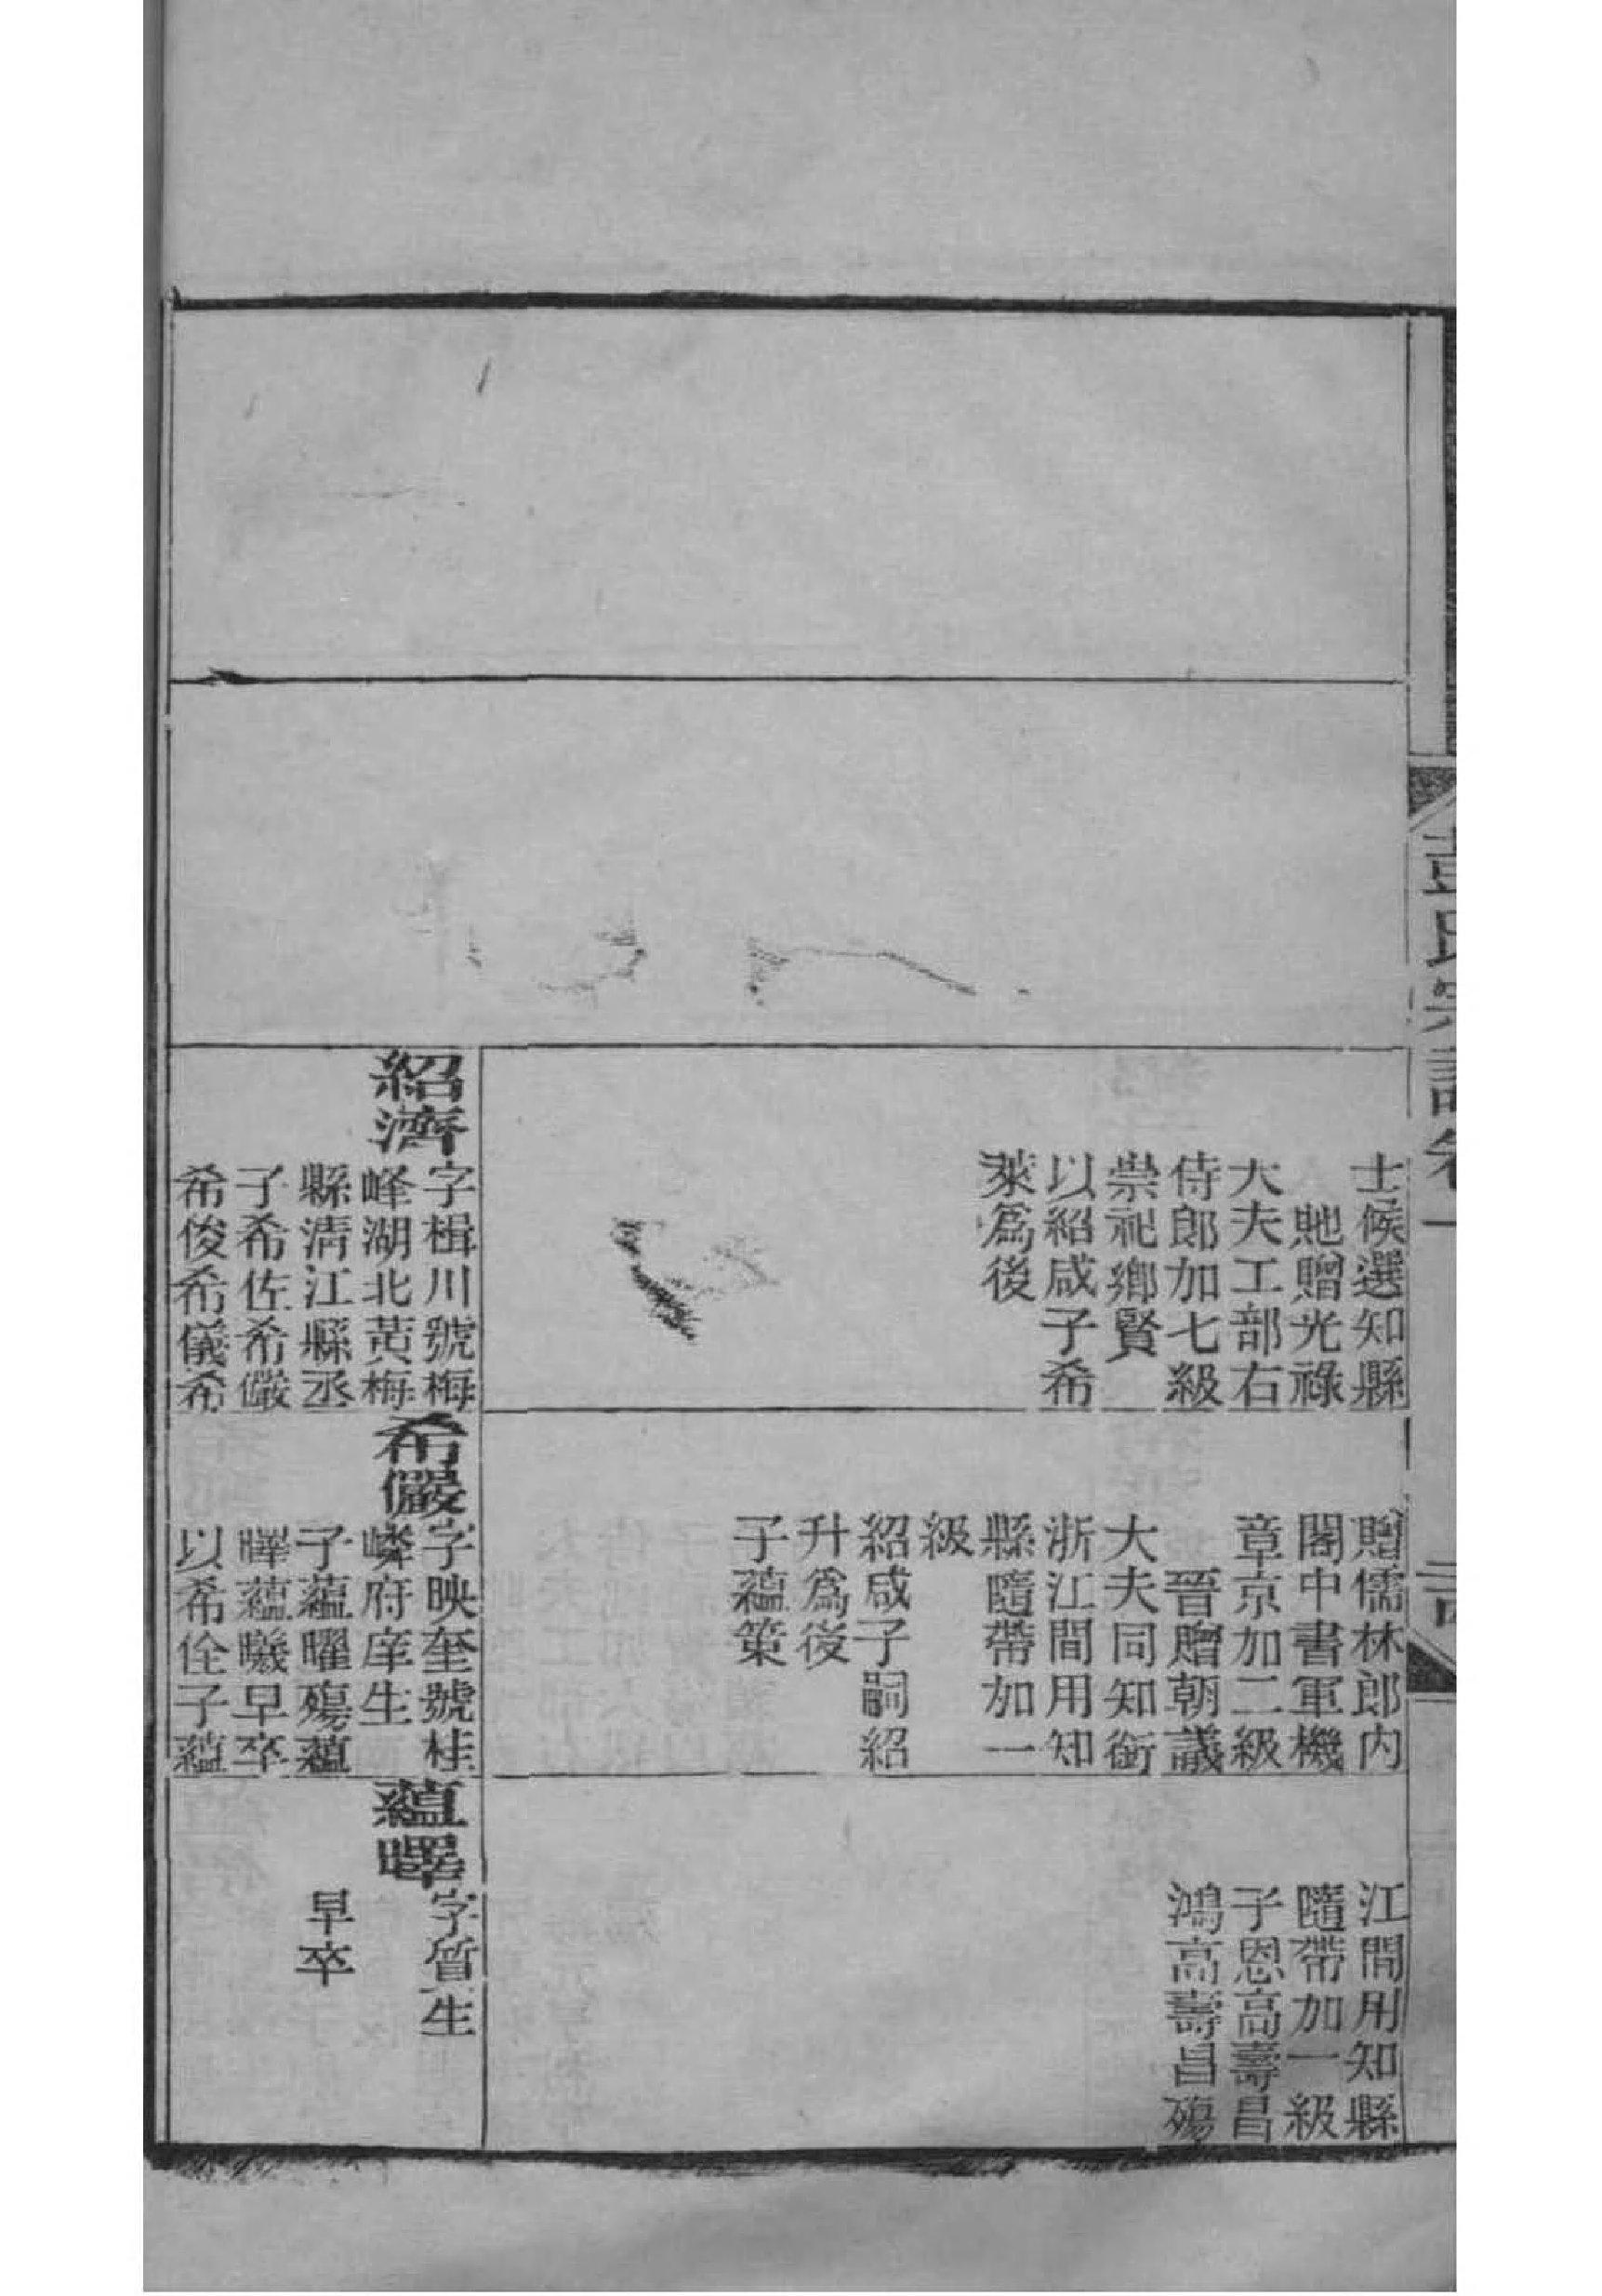 彭氏宗譜卷一
士候選知縣
貤贈光祿
大夫工部右
侍郎加七級
崇祀鄉賢
以紹咸子希
萊爲後
紹濟
字楫川號梅
峰湖北黃梅
縣清江縣丞
子希佐希儼
希俊希儀希
贈儒林郎內
閣中書軍機
章京加二級
晉贈朝議
大夫同知銜
浙江間用知
縣隨帶加一
級
紹咸子嗣紹
升爲後
子蘊策
希儼
字映奎號桂
嶙府庠生
子蘊曜殤蘊
曎蘊曦早卒
以希佺子蘊
江間用知縣
隨帶加一級
子恩高壽昌
鴻高壽昌殤
蘊曎
字質生
早卒